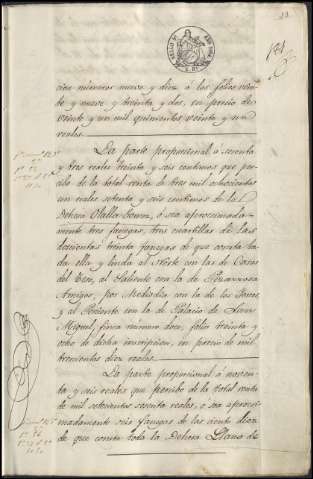 cion números nueve y diez á los folios vein-
te y nueve y treinta y dos, en precio de
veinte y un mil quinientos veinte y un
reales.
La parte proporcional á sesenta
y tres reales treinta y seis centimos que per-
cibe de la total renta de tres mil ochocientos
un reales setenta y seis centimos de la
Dehesa Olalla, ó sea aproximada-
mente tres fanegas, tres cuartillas de las
doscientas treinta fanegas de que consta to-
da ella y linda al Norte con las de Casas
del, al Saliente con la de
, por Mediodia con la de los
y al Poniente con la de Palacio de San
Miguel, finca número doce, folio treinta y
ocho de dicha inscripcion, en precio de mil
trescientos diez reales.
La parte proporcional á noven-
ta y seis reales que percibe de la total renta
de mil setecientos sesenta reales, ó sea aprocsi-
madamente seis fanegas de las ciento diez
de que consta toda la Dehesa Llano de